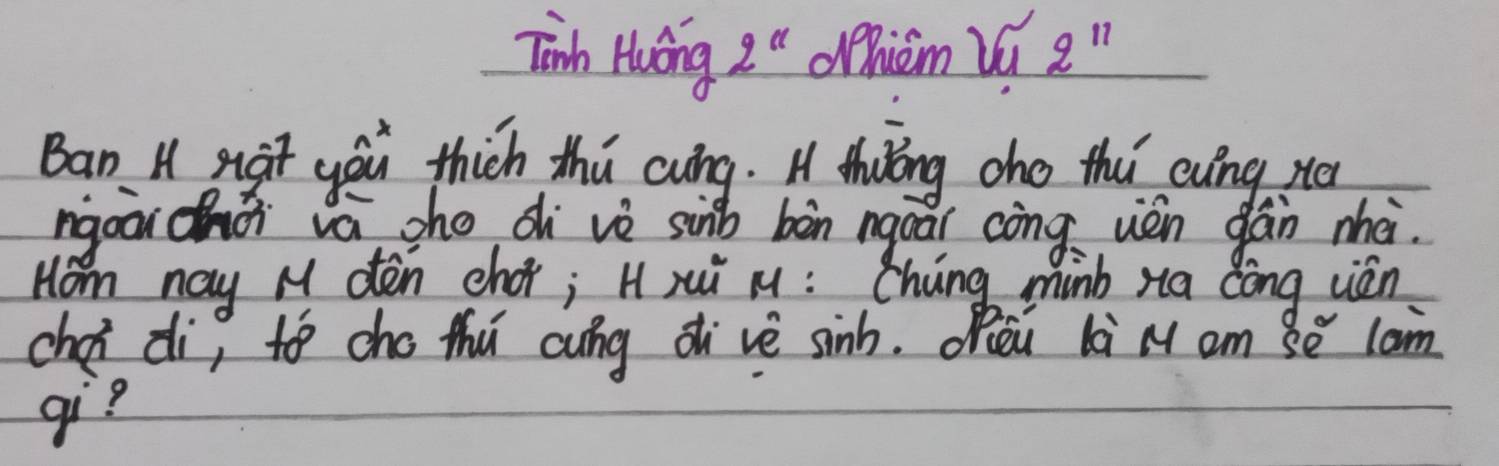 Tình Huống 2 " Nhiệm Vụ 2 "
Bạn H rất yêu thích thú cưng. H thường cho thú cưng ra
ngoài chơi và cho đi vê sinh bên ngoài công viên gần nhà.
Hôm nay M đến chơi ; H rủ M : Chúng mình ra công viên
chơi đi, tớ cho thú cưng đi vệ sinh. Nếu là M em sẽ làm
gì ?